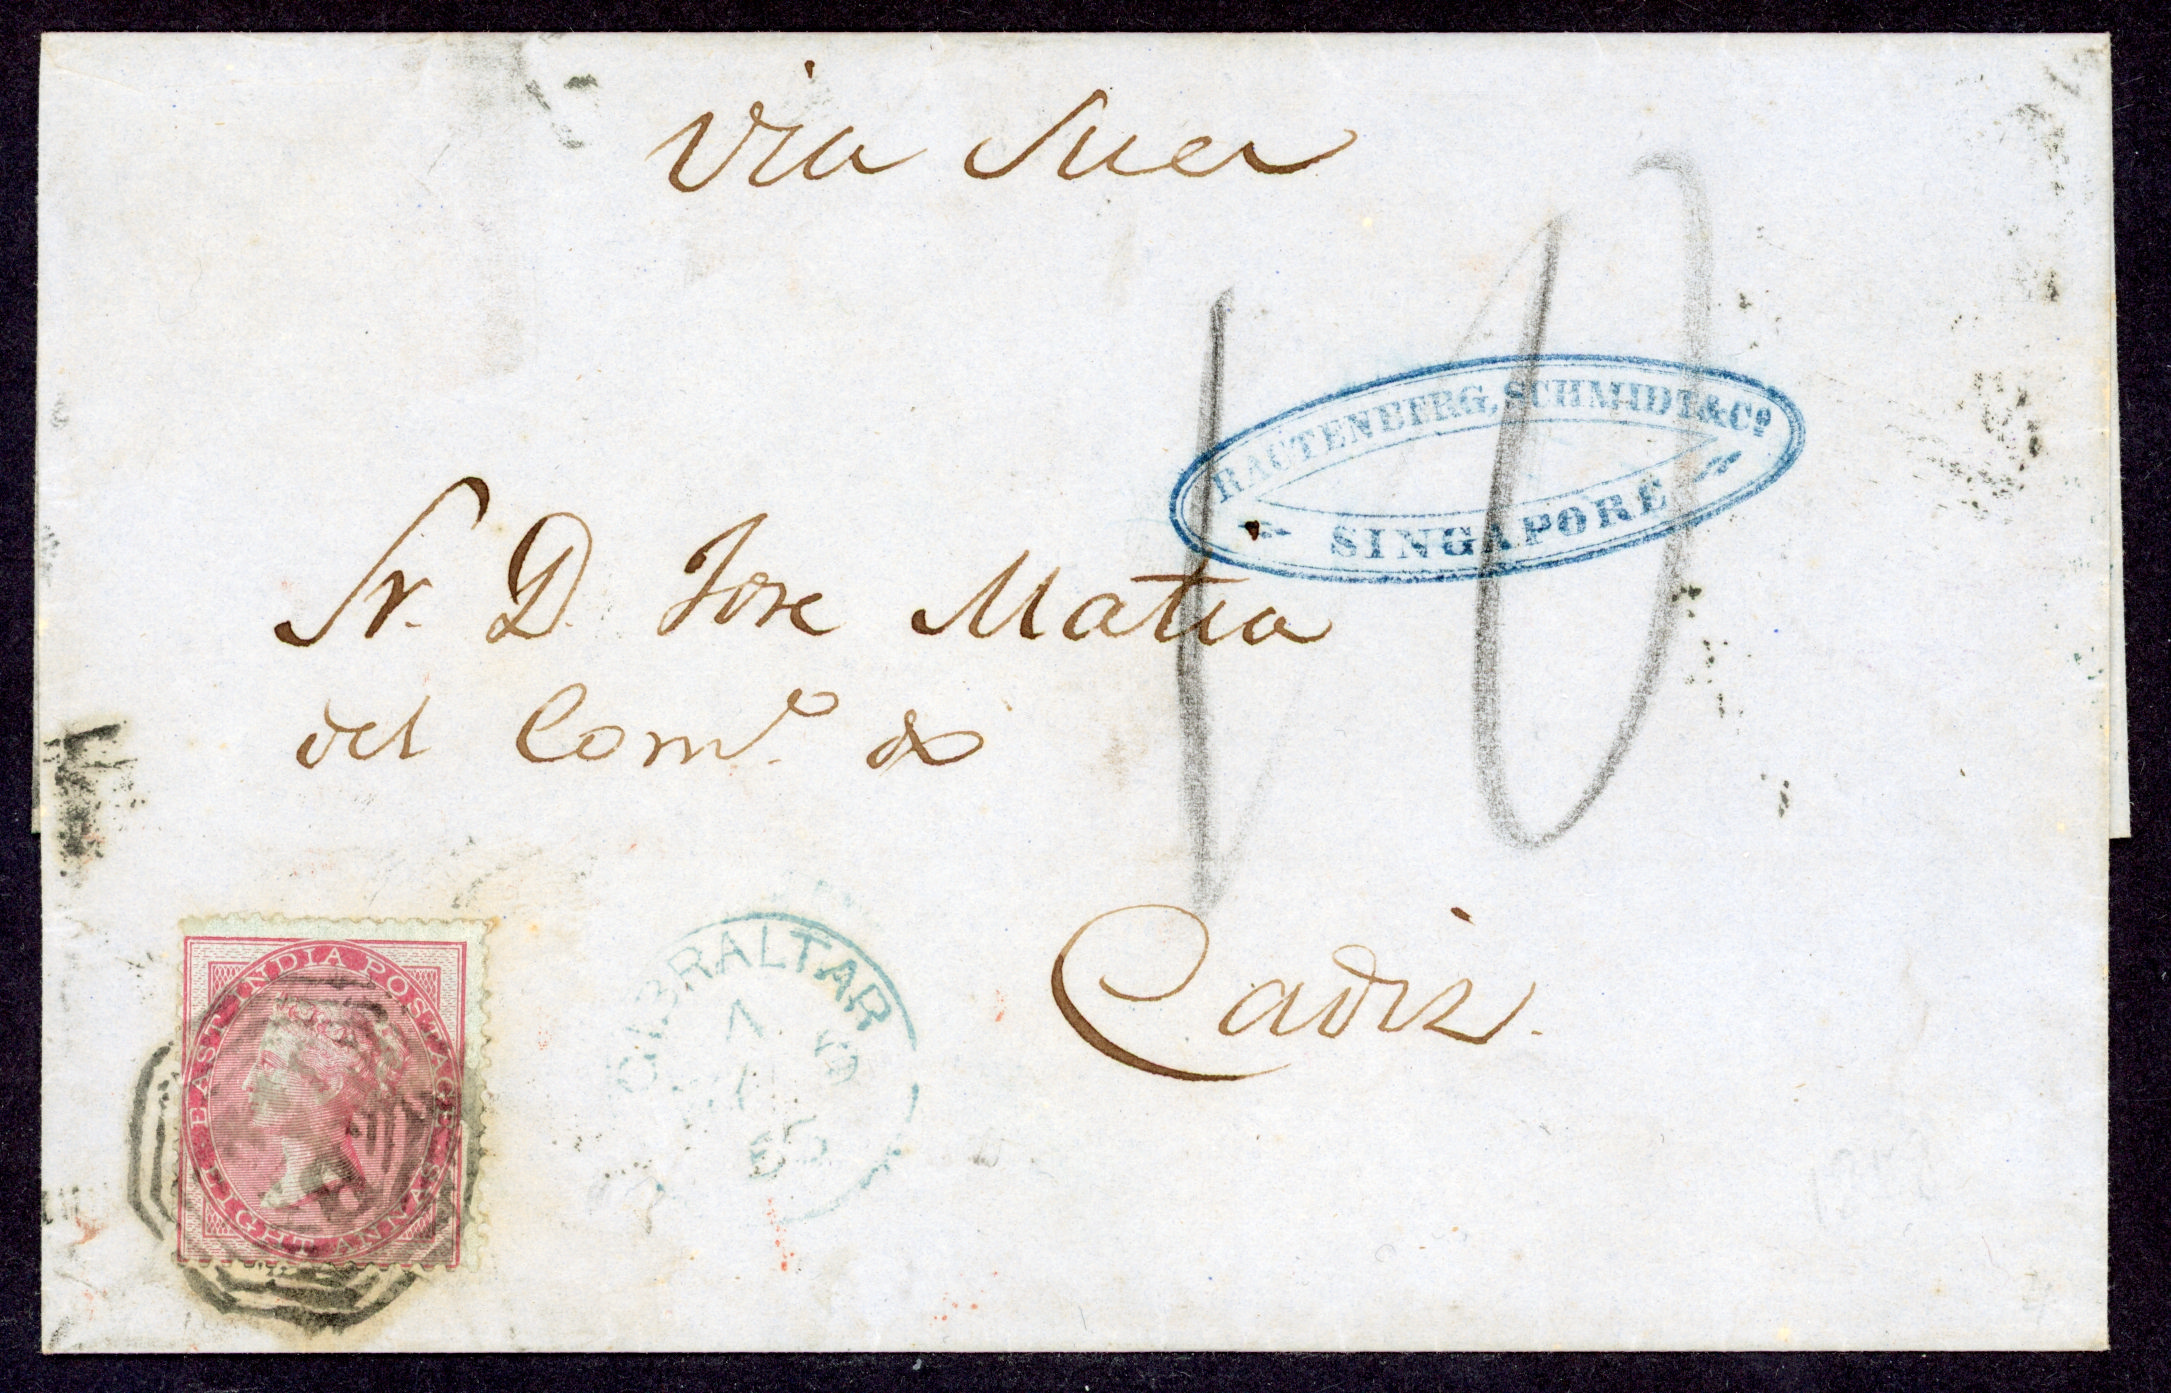 Via Suez
RAUTENBERG, SCHMIDT & Cº
SINGAPORE
Sr. D. Jose Matia
del Comº &
10
Cadiz.
EAST INDIA POSTAGE
EIGHT ANNAS
GIBRALTAR
A
65